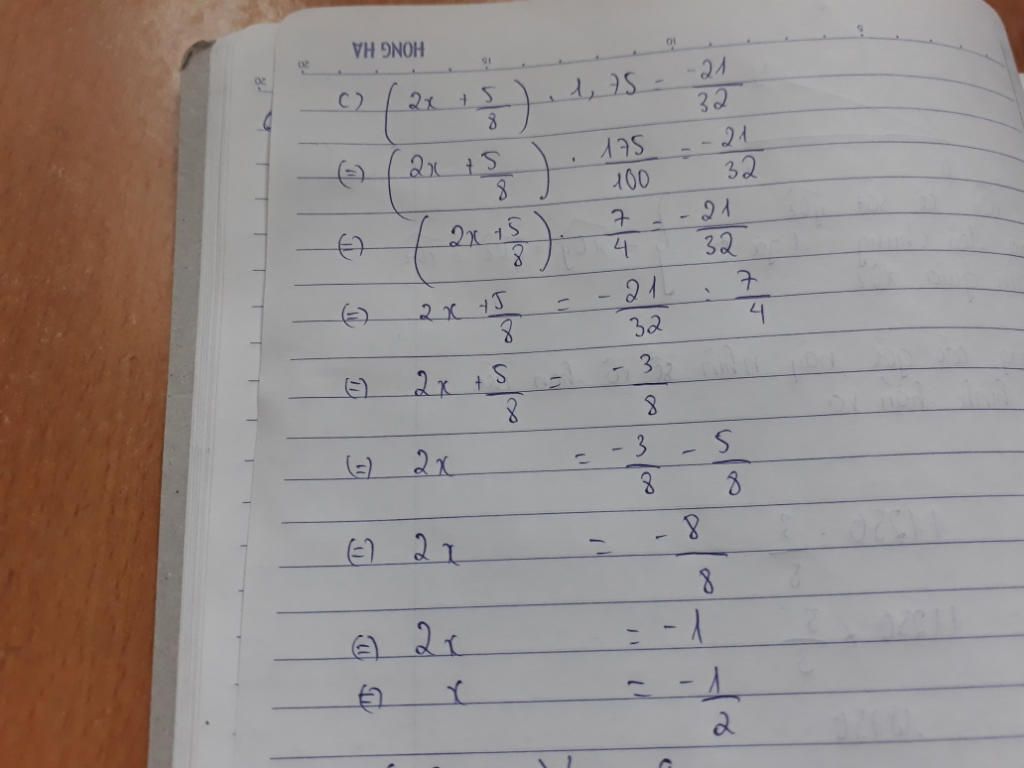 HONG HA
c) (2x + 5/8) . 1,75 = -21/32
(=) (2x + 5/8) . 175/100 = -21/32
(=) (2x + 5/8) . 7/4 = -21/32
(=) 2x + 5/8 = -21/32 : 7/4
(=) 2x + 5/8 = -3/8
(=) 2x = -3/8 - 5/8
(=) 2x = -8/8
(=) 2x = -1
(=) x = -1/2